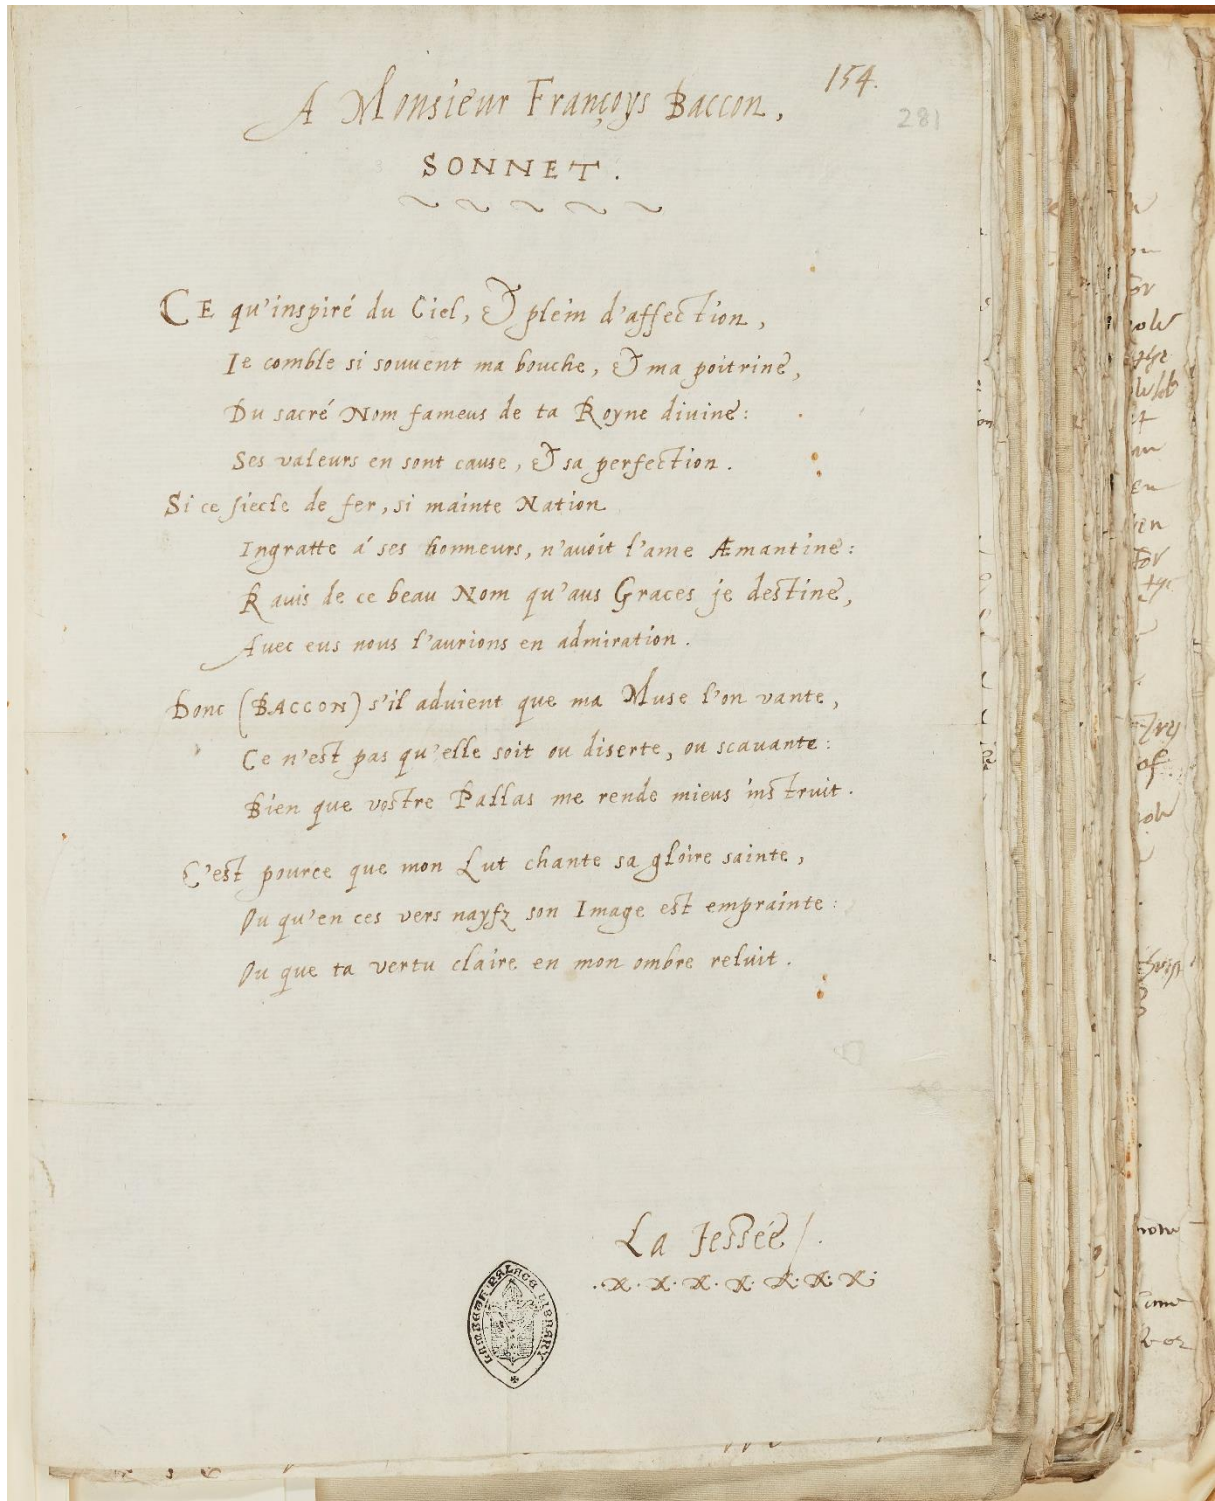 154.
281
A Monsieur Françoys Baccon,
SONNET.
CE qu'inspiré du Ciel, & plein d'affection,
Ie comble si souuent ma bouche, & ma poitrine,
Du sacré Nom fameus de ta Royne diuine:
Ses valeurs en sont cause, & sa perfection.
Si ce siecle de fer, si mainte Nation
Ingratte á ses honneurs, n'auoit l'ame Æmantine:
Rauis de ce beau Nom qu'aus Graces je destine,
Auec eus nous l'aurions en admiration.
Donc (BACCON) s'il aduient que ma Muse l'on vante,
Ce n'est pas qu'elle soit ou diserte, ou scauante:
Bien que vostre Pallas me rende mieus instruit.
C'est pource que mon Lut chante sa gloire sainte,
Ou qu'en ces vers nayfz son Image est emprainte:
Ou que ta vertu claire en mon ombre reluit.
La Jessée/.
LAMBETH PALACE LIBRARY